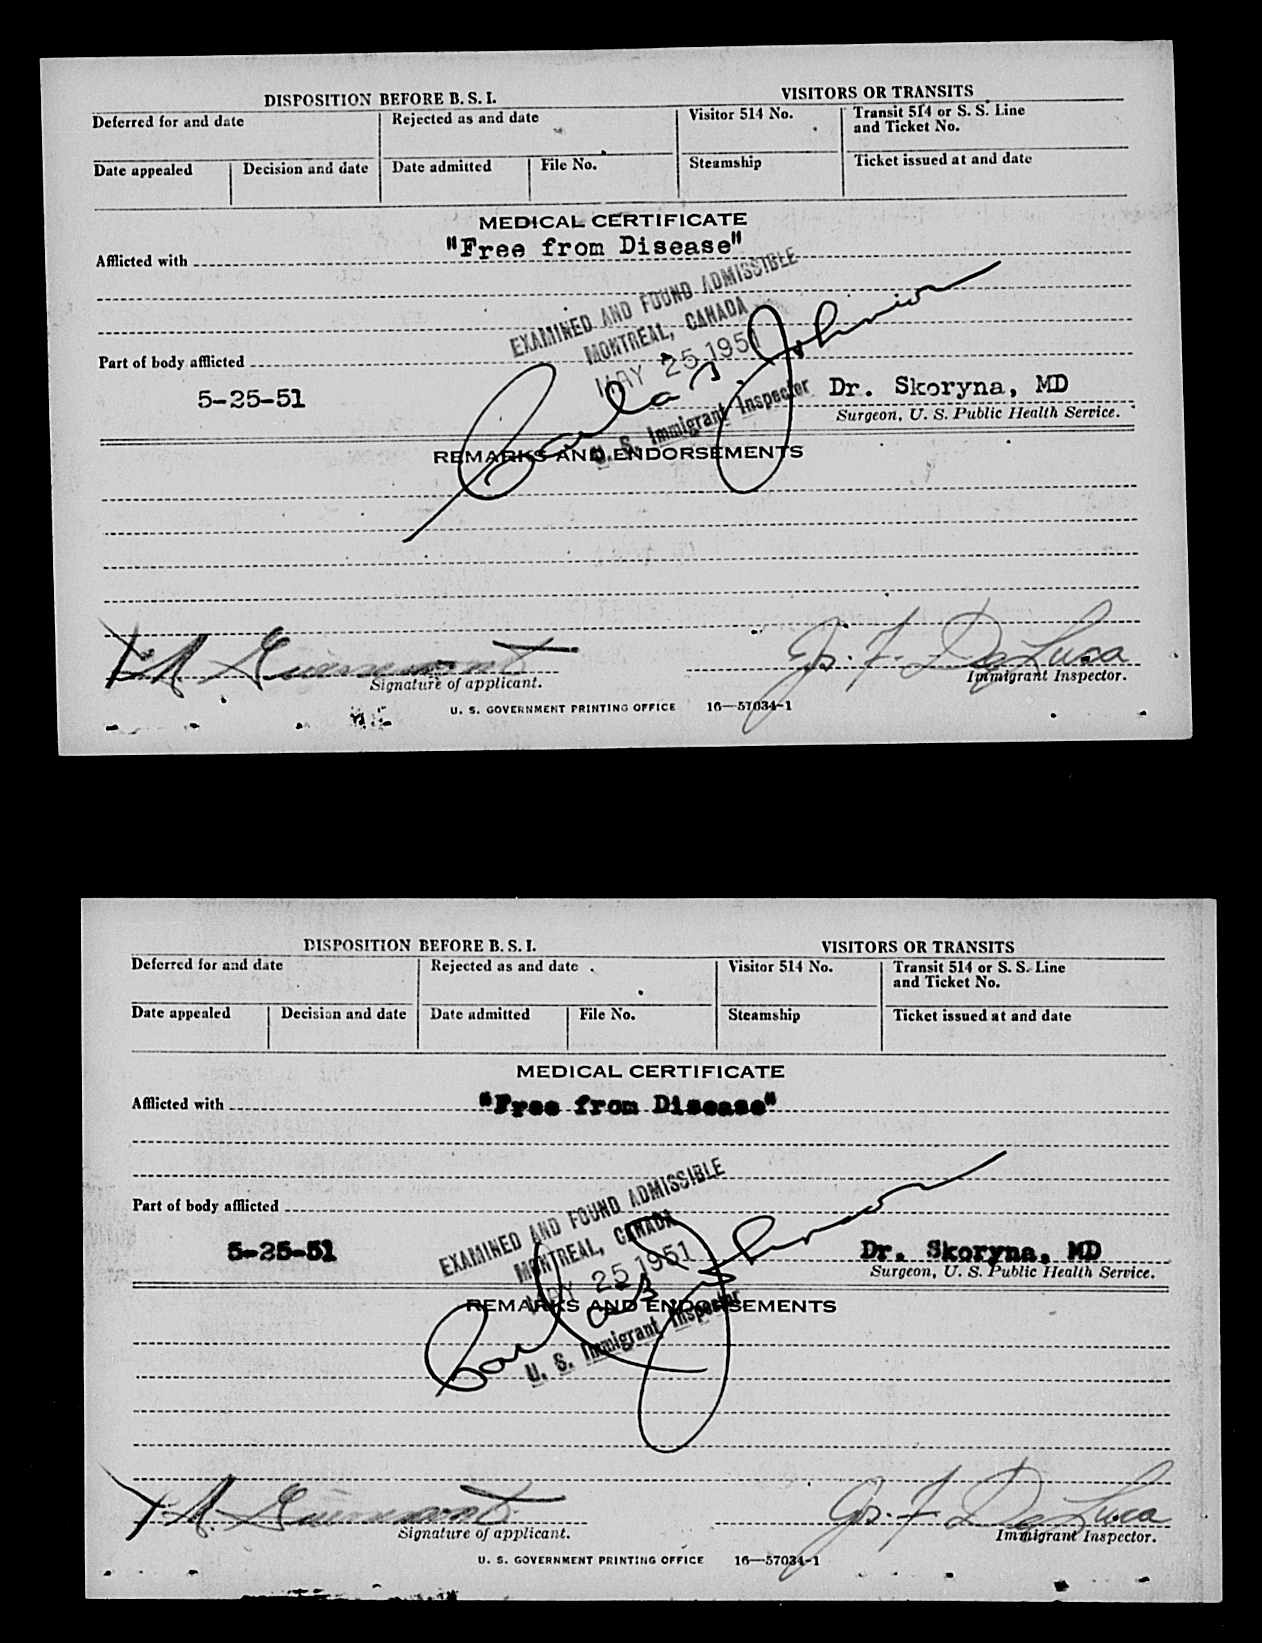 DISPOSITION BEFORE B. S. I. VISITORS OR TRANSITS
Deferred for and date Rejected as and date Visitor 514 No. Transit 514 or S. S. Line
and Ticket No.
Date appealed Decision and date Date admitted File No. Steamship Ticket issued at and date
MEDICAL CERTIFICATE
Afflicted with "Free from Disease"
EXAMINED AND FOUND ADMISSIBLE
MONTREAL, CANADA
MAY 25 1951
U. S. Immigrant Inspector
Part of body afflicted
5-25-51 Dr. Skoryna, MD
Surgeon, U. S. Public Health Service.
REMARKS AND ENDORSEMENTS
Johnson
Jos. F. DeLuca
Signature of applicant. Immigrant Inspector.
U. S. GOVERNMENT PRINTING OFFICE 16—57034-1
DISPOSITION BEFORE B. S. I. VISITORS OR TRANSITS
Deferred for and date Rejected as and date Visitor 514 No. Transit 514 or S. S. Line
and Ticket No.
Date appealed Decision and date Date admitted File No. Steamship Ticket issued at and date
MEDICAL CERTIFICATE
Afflicted with "Free from Disease"
Part of body afflicted
EXAMINED AND FOUND ADMISSIBLE
MONTREAL, CANADA
MAY 25 1951
U. S. Immigrant Inspector
5-25-51 Dr. Skoryna, MD
Surgeon, U. S. Public Health Service.
REMARKS AND ENDORSEMENTS
Johnson
Jos. F. DeLuca
Signature of applicant. Immigrant Inspector.
U. S. GOVERNMENT PRINTING OFFICE 16—57034-1